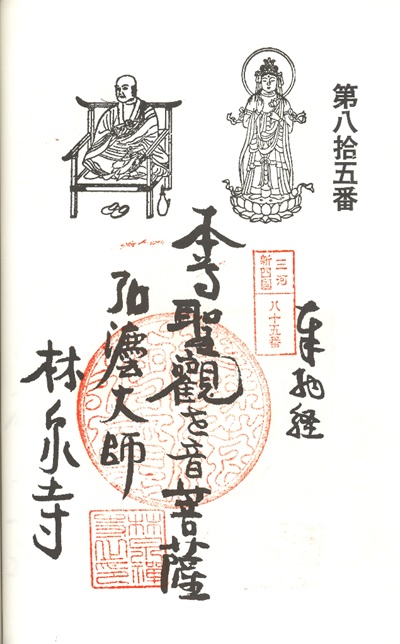 第八拾五番
奉納経
三河
新四国
八十五番
本尊聖観世音菩薩
弘法大師
林泉寺